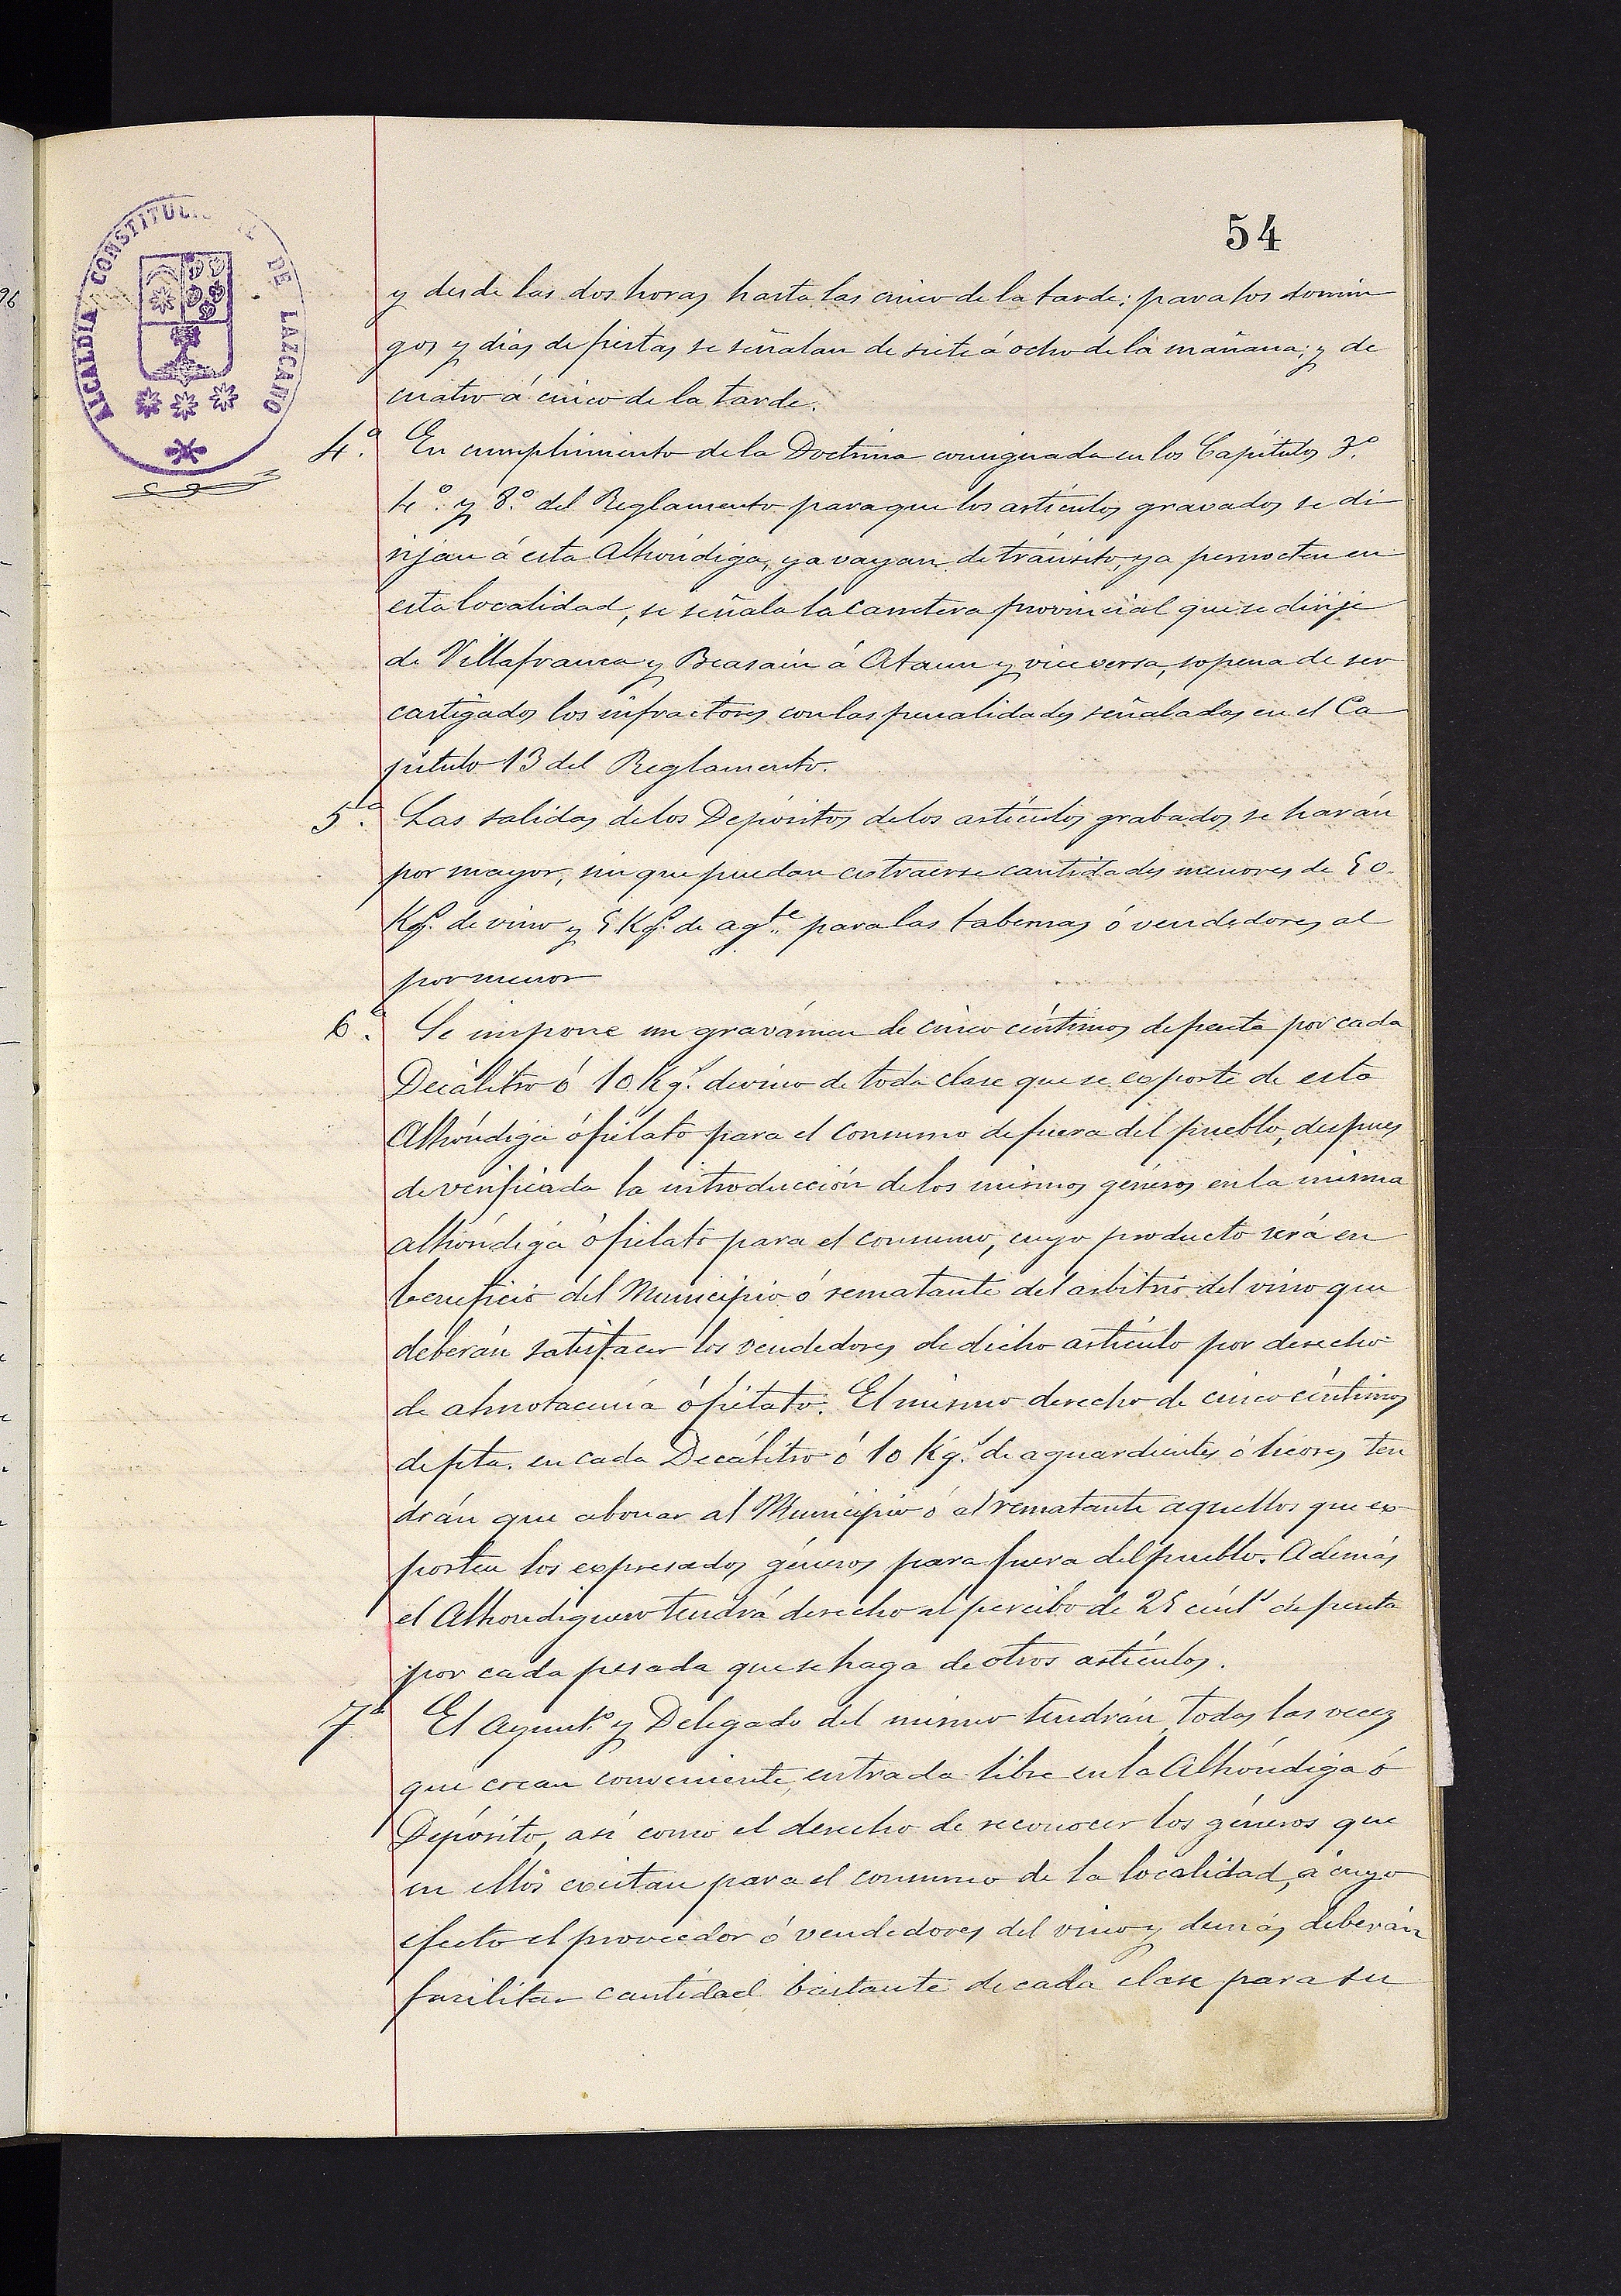 54
ALCALDÍA CONSTITUCI DE LAZCANO
96
y desde las dos horas hasta las cinco de la tarde: para los domin
gos y dias de fiestas se señalan de siete á ocho de la mañana; y de
cuatro á cinco de la tarde.
4.ª En cumplimiento de la Doctrina consignada en los Capítulos 3.º
4.º y 8.º del Reglamento para que los artículos gravados se di
rijan á esta Alhóndiga, ya vayan de tránsito, ya pernocten en
esta localidad, se señala la carretera provincial que se dirije
de Villafranca y Beasain á Ataun y vice versa, so pena de ser
castigados los infractores con las penalidades señaladas en el Ca
pítulo 13 del Reglamento.
5.ª Las salidas de los Depósitos de los artículos grabados se harán
por mayor, sin que puedan extraerse cantidades menores de 50
Kgs. de vino y 5 Kgs. de agte para las tabernas ó vendedores al
por menor
6.ª Se impone un gravámen de cinco céntimos de peseta por cada
Decálitro ó 10 Kgs. de vino de toda clase que se exporte de esta
Alhóndiga ó fielato para el consumo de fuera del pueblo, despues
de verificada la introducción de los mismos géneros en la misma
alhóndiga ó fielato para el consumo, cuyo producto será en
beneficio del Municipio ó rematante del arbitrio del vino que
deberán satisfacer los vendedores de dicho artículo por derecho
de almotacenía ó fielato. El mismo derecho de cinco céntimos
de pta. en cada Decálitro ó 10 Kgs. de aguardientes ó licores ten
drán que abonar al Municipio ó al rematante aquellos que ex
porten los expresados géneros para fuera del pueblo. Además
el Alhondiguero tendrá derecho al percibo de 25 cénts de peseta
por cada pesada que se haga de otros artículos.
7.ª El Ayunto y Delegado del mismo tendrán, todas las veces
que crean conveniente, entrada libre en la Alhóndiga ó
Depósito, así como el derecho de reconocer los géneros que
en ellos existan para el consumo de la localidad, á cuyo
efecto el proveedor ó vendedores del vino y demás deberán
facilitar cantidad bastante de cada clase para su